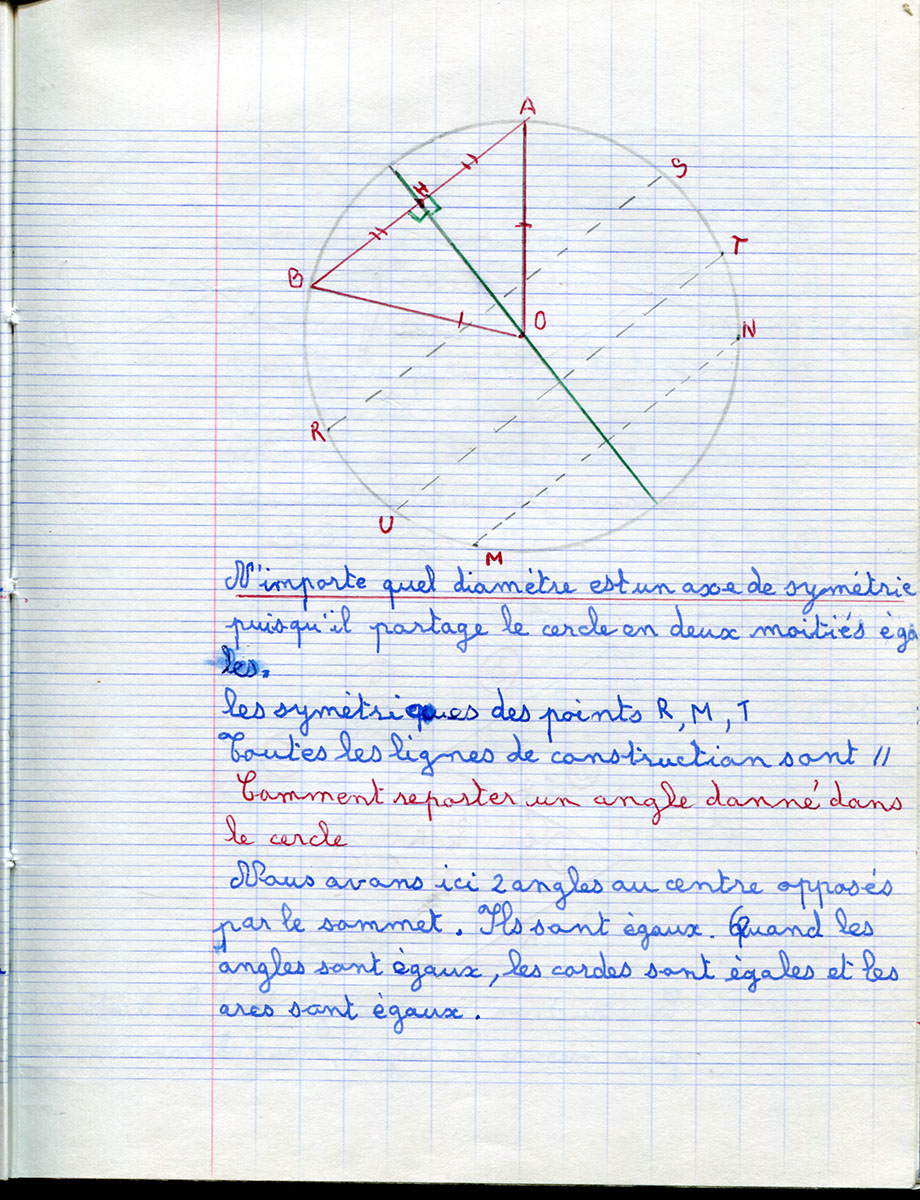 A
S
H
T
B
O
N
R
U
M
N'importe quel diamètre est un axe de symétrie
puisqu'il partage le cercle en deux moitiés éga
les.
les symètriques des points R, M, T
Toutes les lignes de construction sont //
Comment reporter un angle donné dans
le cercle
Nous avons ici 2 angles au centre opposés
par le sommet. Ils sont égaux. Quand les
angles sont ègaux, les cordes sont égales et les
arcs sont ègaux.